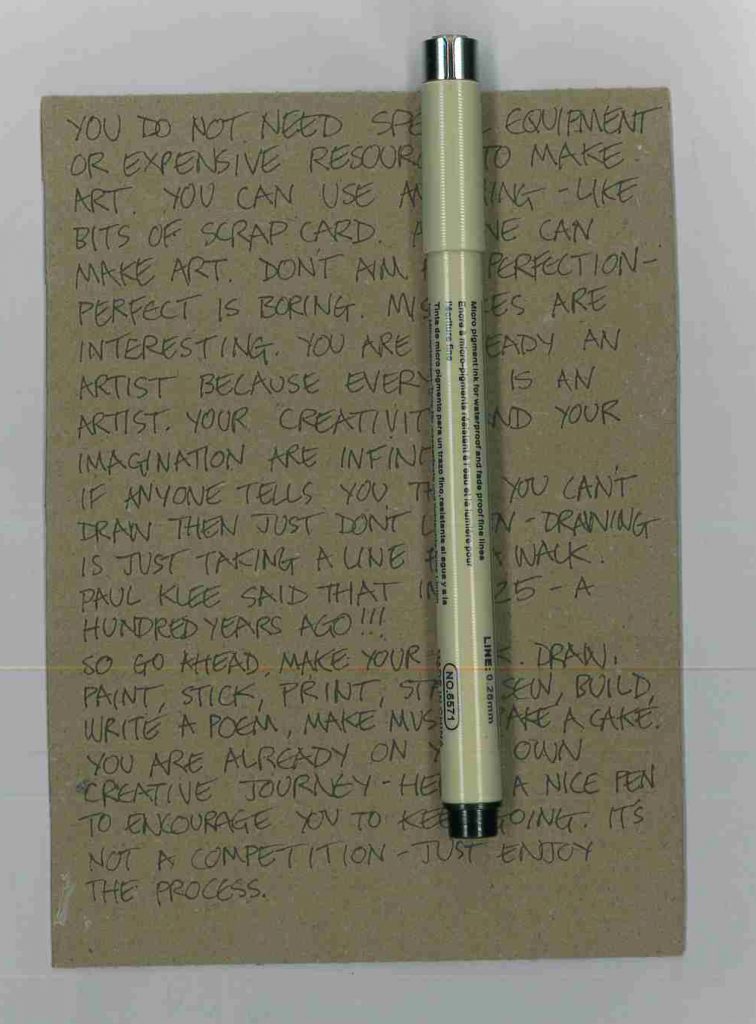 YOU DO NOT NEED SPE EQUIPMENT
OR EXPENSIVE RESOUR TO MAKE
ART. YOU CAN USE AN HING - LIKE
BITS OF SCRAP CARD. A NE CAN
MAKE ART. DON'T AIM PERFECTION -
PERFECT IS BORING. MIS ES ARE
INTERESTING. YOU ARE EADY AN
ARTIST BECAUSE EVERY IS AN
ARTIST. YOUR CREATIVIT ND YOUR
IMAGINATION ARE INFIN
IF ANYONE TELLS YOU TH YOU CAN'T
DRAW THEN JUST DON'T L N - DRAWING
IS JUST TAKING A LINE A WALK.
PAUL KLEE SAID THAT IN 25 - A
HUNDRED YEARS AGO!!!
SO GO AHEAD, MAKE YOUR K. DRAW,
PAINT, STICK, PRINT, STA SEW, BUILD,
WRITE A POEM, MAKE MUS AKE A CAKE.
YOU ARE ALREADY ON Y OWN
CREATIVE JOURNEY - HE A NICE PEN
TO ENCOURAGE YOU TO KEE GOING. IT'S
NOT A COMPETITION - JUST ENJOY
THE PROCESS.
Micro pigment ink for waterproof and fade proof fine lines
Encre à micro-pigments résistant à l'eau et la lumière pour
l'écriture fine
Tinta de micro pigmento para un trazo fino, resistente al agua y a la
LINE: 0.25mm
NO.6571